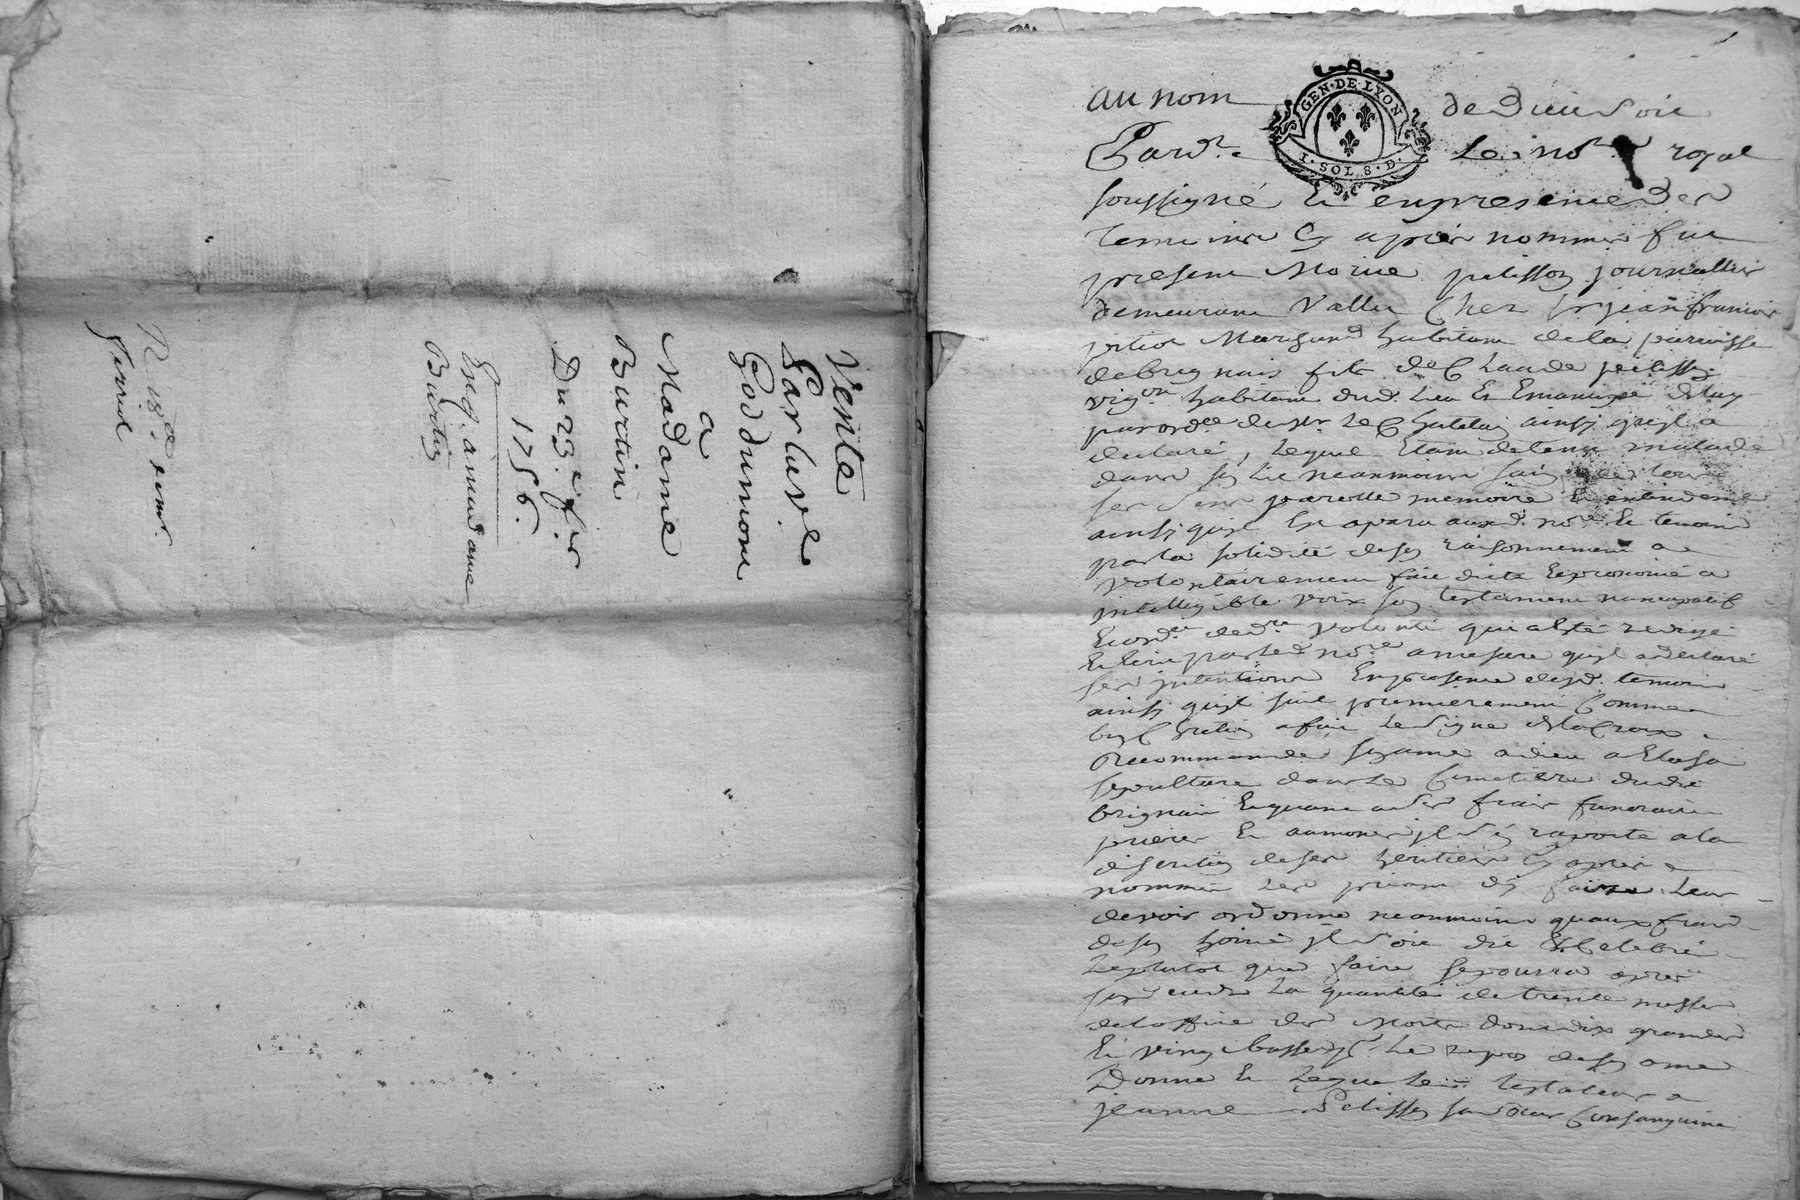 Vente
Par la ve
Goddumone
a
Madame
Burtin
Du 23.e f.er
1756.
Exp. a madame
Burtin
N. 18.
au nom de Dieu soit
GEN·DE·LYON
I·SOL·8·D·
Pard.t le no.re royal
soussigné et en presence des
temoins cy apres nommés fut
present pelisson journallier
demeurant vallet chez sr jean francois
Marchand habitant de la paroisse
de brignais fils de Claude pelisson
vig.on habitant dud. lieu et Emancipé de luy
par ord.ce de mr. le Chatelain ainsy qu'il a
declaré, lequel étant detenu malade
dans son lit neanmoins sain de tous
ses sens parolle memoire et entendement
ainsy qu'il est aparu aud. no.re et temoins
par la solidité de son raisonnement a
volontairement fait dicté et prononcé a
intelligible voix son testament nuncupatif
et ord.ce de d.re volonté qui a été redigé
et écrit par led. no.re a mesure qu'il a declaré
ses intentions en presence desd. temoins
ainsy qu'il suit premierement comme
bon Chretien a fait le signe de la Croix
Recommandé son ame a dieu a Elu sa
sepulture dans le Cimetiere dudit
brignais et quant a ses frais funeraires
prieres et aumones il s'en raporte a la
discretion de ses heritiers cy apres
nommés les priant d'y faire leur
devoir ordonne neanmoins qu'aux frais
de son hoirie il soit dit et Celebré
le plutot que faire se pourra apres
son decès la quantité de trente messes
de l'office des Morts dont dix grandes
et vingt basses p.r le repos de son ame
Donne et legue led. testateur a
jeanne Pelisson sa soeur Consanguine